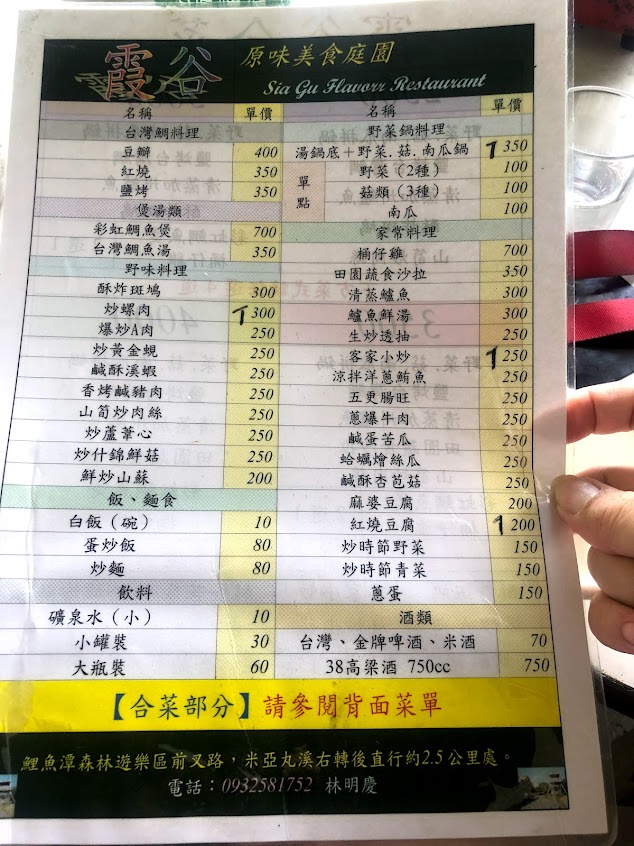 霞谷 原味美食庭園
Sia Gu Flavorr Restaurant
名稱 單價
台灣鯛料理
豆瓣 400
紅燒 350
鹽烤 350
煲湯類
彩虹鯛魚煲 700
台灣鯛魚湯 350
野味料理
酥炸斑鳩 300
炒螺肉 300
爆炒A肉 250
炒黃金蜆 250
鹹酥溪蝦 250
香烤鹹豬肉 250
山筍炒肉絲 250
炒蘆葦心 250
炒什錦鮮菇 250
鮮炒山蘇 200
飯、麵食
白飯（碗） 10
蛋炒飯 80
炒麵 80
飲料
礦泉水（小） 10
小罐裝 30
大瓶裝 60
名稱 單價
野菜鍋料理
湯鍋底＋野菜.菇.南瓜鍋 1 350
單點
野菜（2種） 100
菇類（3種） 100
南瓜 100
家常料理
桶仔雞 700
田園蔬食沙拉 350
清蒸鱸魚 300
鱸魚鮮湯 300
生炒透抽 250
客家小炒 1 250
涼拌洋蔥鮪魚 250
五更腸旺 250
蔥爆牛肉 250
鹹蛋苦瓜 250
蛤蠣燴絲瓜 250
鹹酥杏苞菇 250
麻婆豆腐 200
紅燒豆腐 1 200
炒時節野菜 150
炒時節青菜 150
蔥蛋 150
酒類
台灣、金牌啤酒、米酒 70
38高梁酒 750cc 750
【合菜部分】請參閱背面菜單
鯉魚潭森林遊樂區前叉路，米亞丸溪右轉後直行約2.5公里處。
電話：0932581752 林明慶